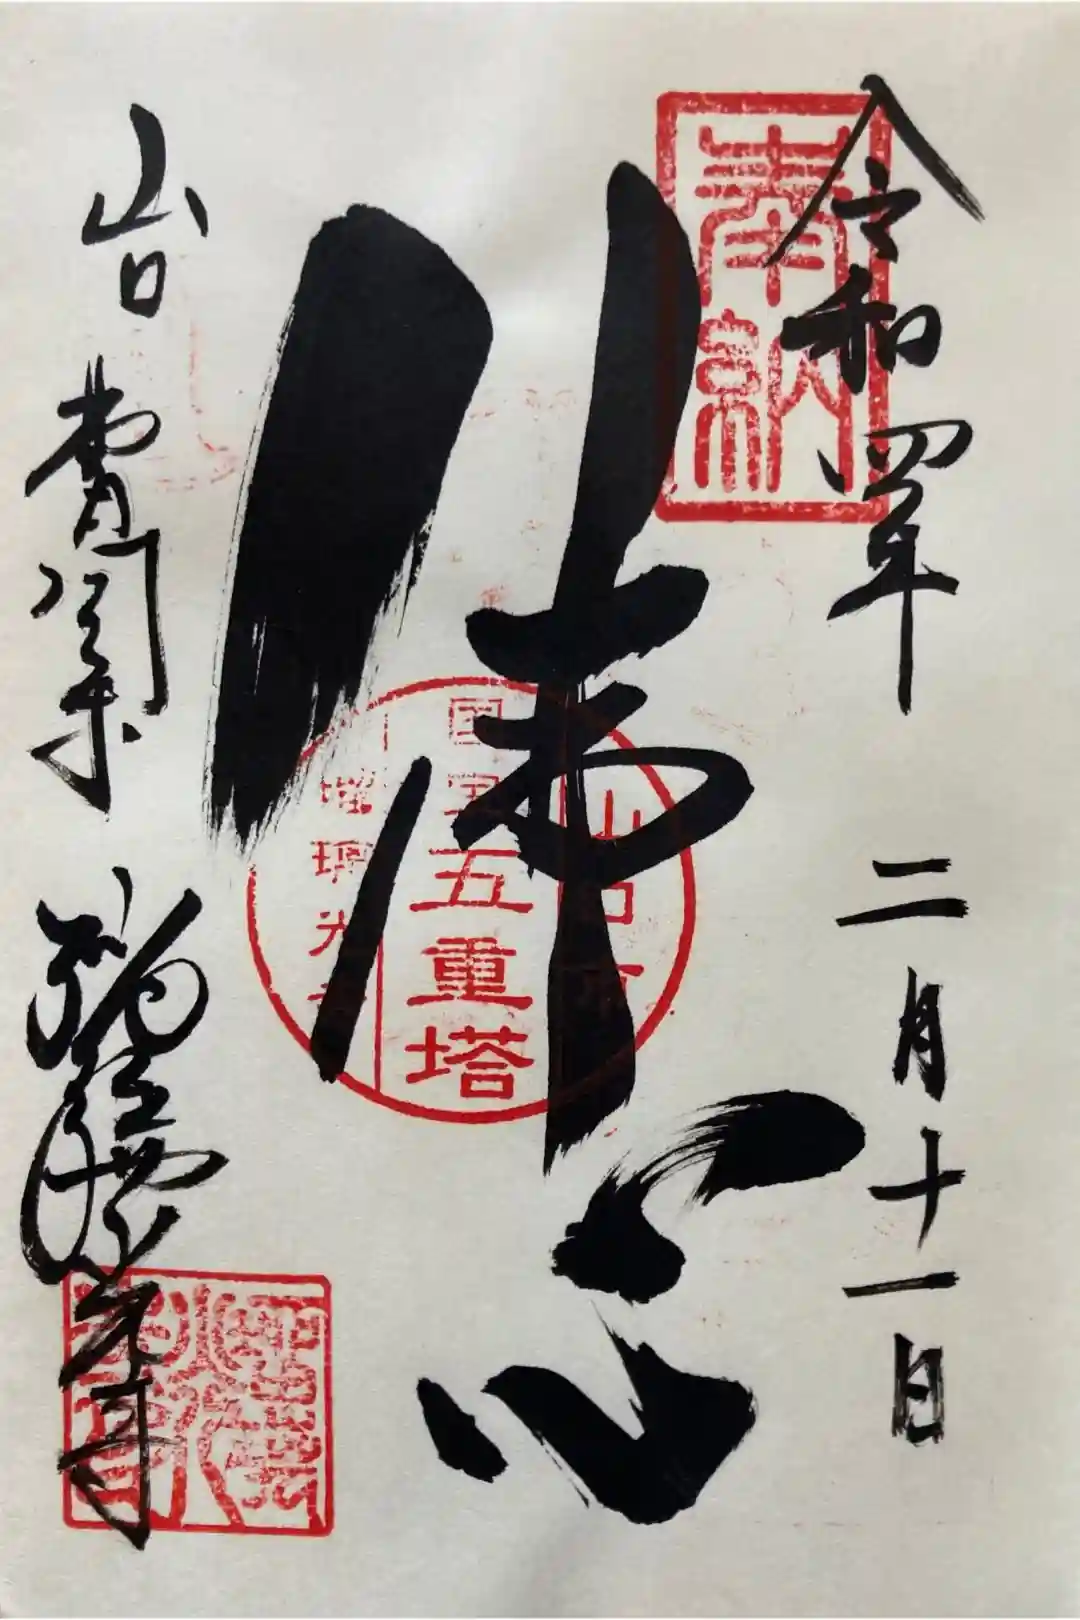 奉納
令和四年 二月十一日
佛心
山口市
国宝五重塔
瑠璃光寺
山口
瑠璃光寺